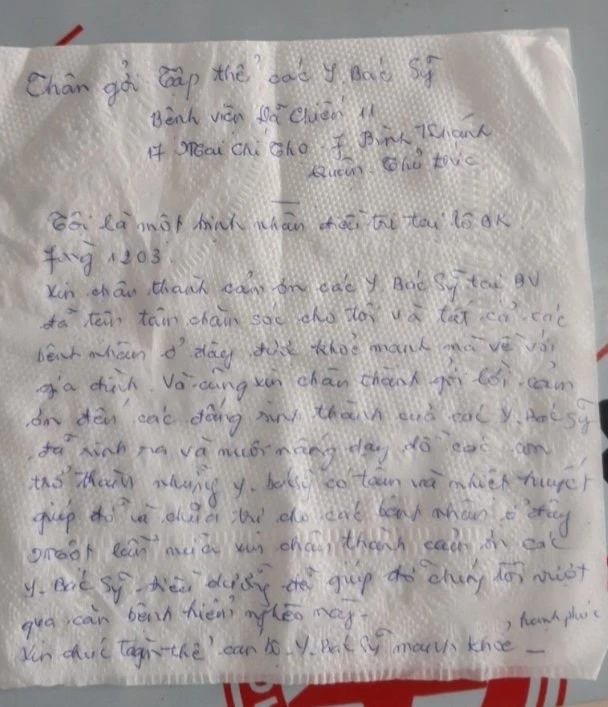 Chân gởi Tập thể các Y. Bác Sỹ
Bệnh viện Dã chiến 11
17 Mai Chí Thọ F Bình Khánh
Quận Thủ Đức
Tôi là một bịnh nhân điều trị tại lô OK
1203.
Xin chân thành cảm ơn các Y Bác Sỹ tại BV
đã tận tâm chăm sóc cho tôi và tất cả các
bệnh nhân ở đây được khoẻ mạnh mà về với
gia đình. Và cũng xin chân thành gởi lời cảm
ơn đến các đấng sinh thành của các Y. Bác Sỹ
đã sinh ra và nuôi nấng dạy dỗ các con
trở thành những y. bác sỹ có tâm và nhiệt huyết
giúp đỡ và chữa trị cho các bệnh nhân ở đây
Một lần nữa xin chân thành cảm ơn các
Y. Bác Sỹ điều dưỡng đã giúp đỡ chúng tôi vượt
qua căn bệnh hiểm nghèo này.
Xin chúc tập thể cán bộ. Y. Bác Sỹ mạnh khoẻ, hạnh phúc